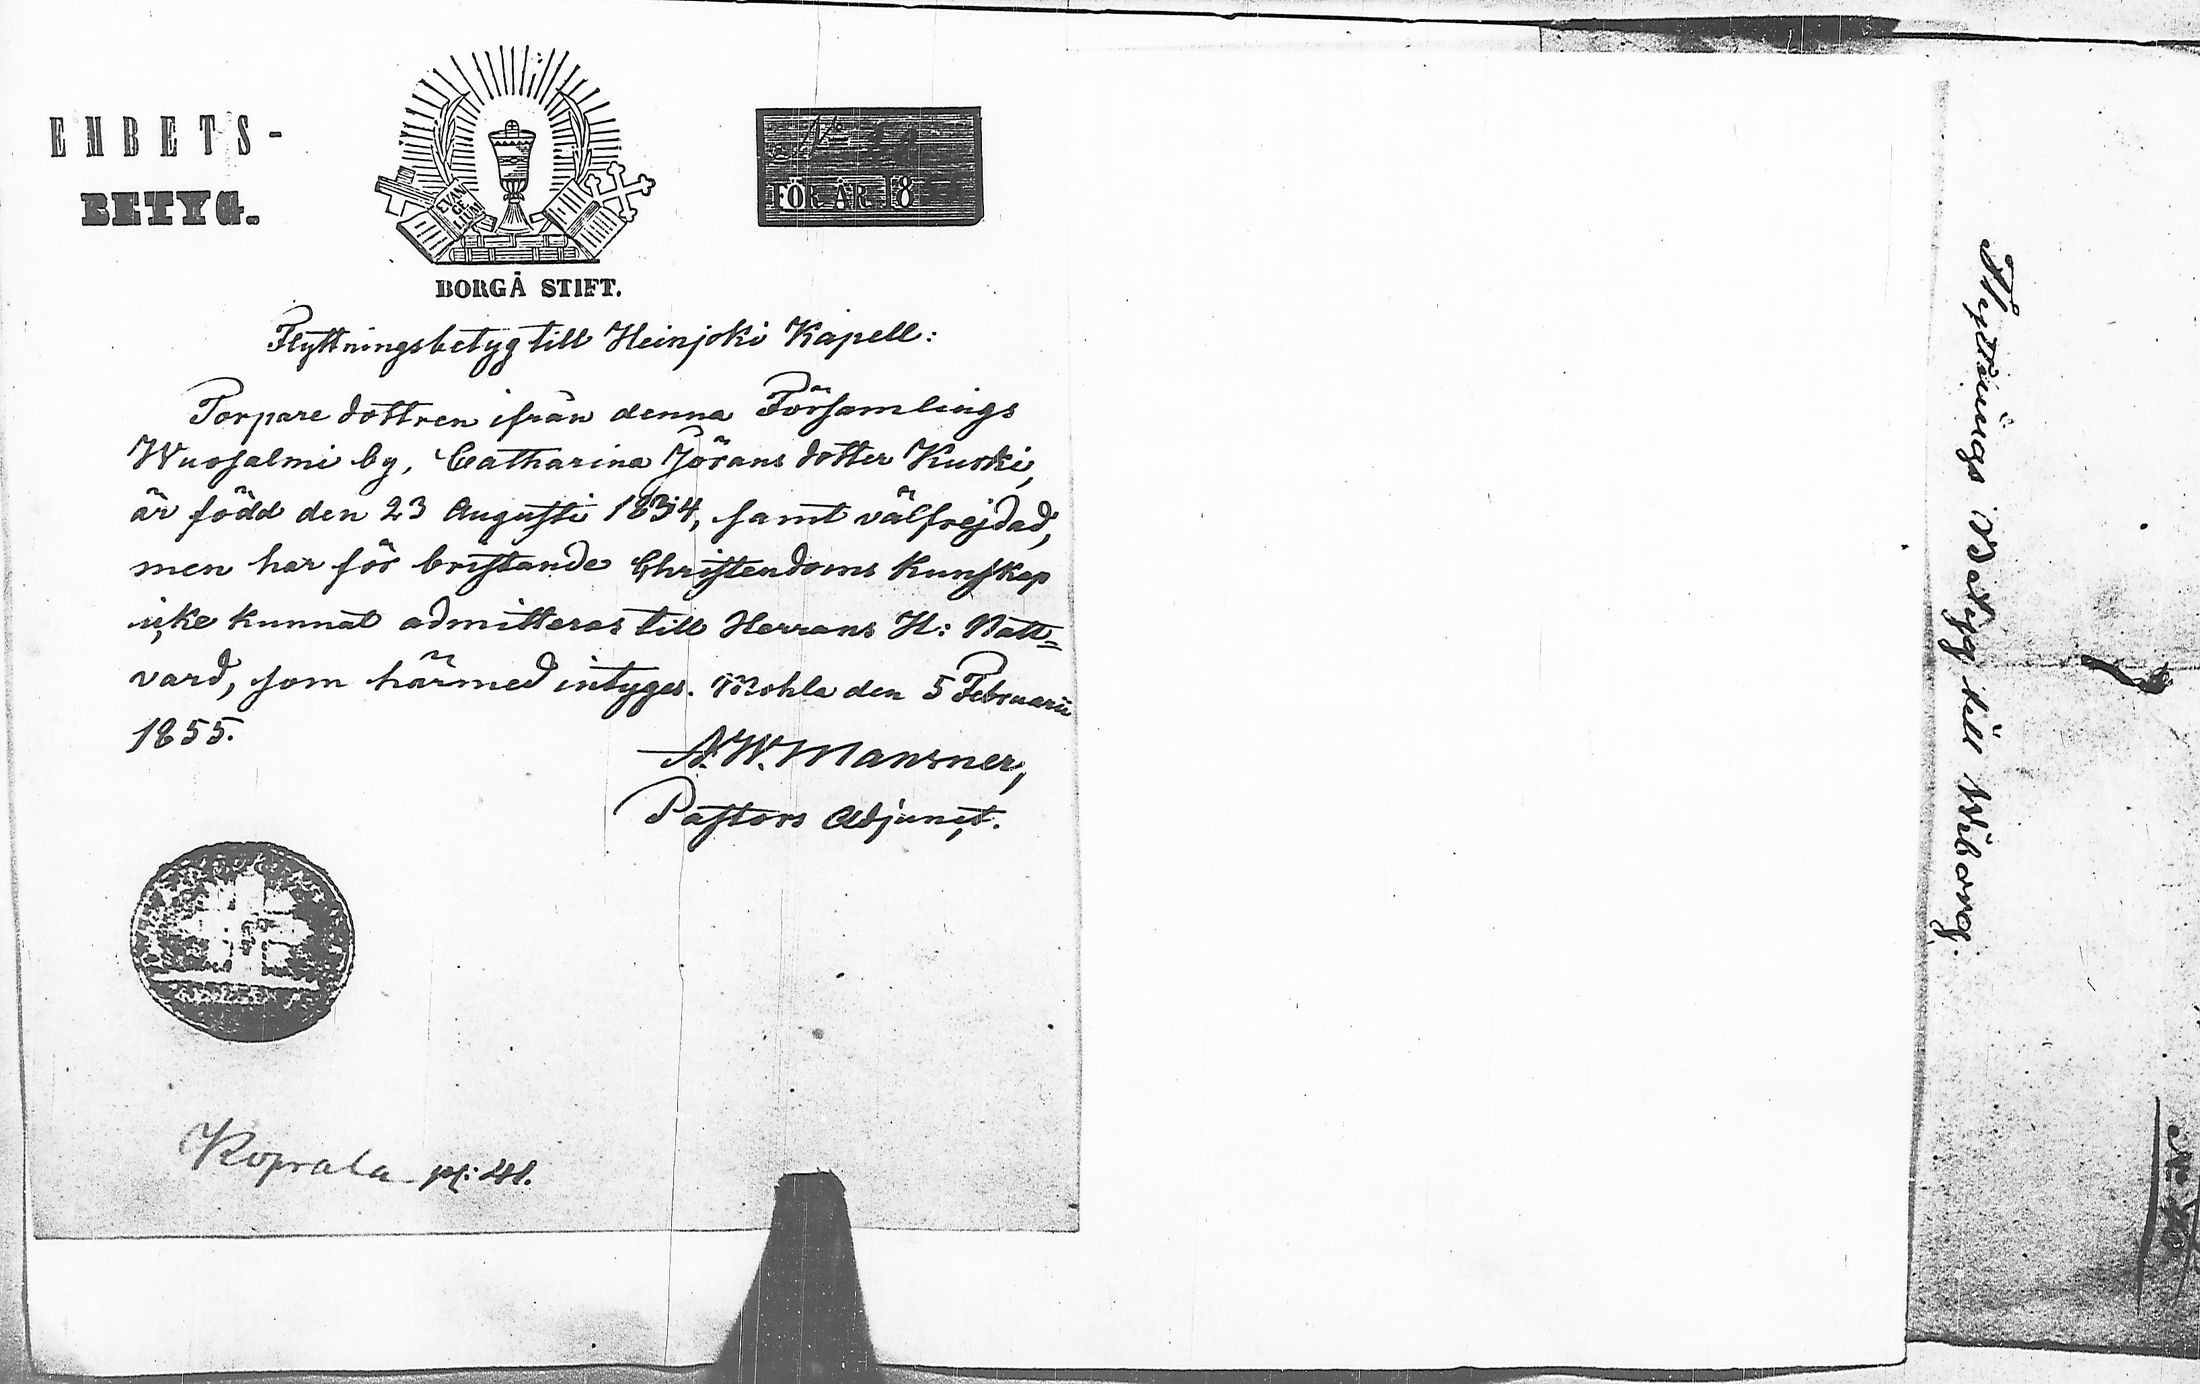 EMBETS-
BETYG.
EVAN
GE
LIUM
BORGÅ STIFT.
FÖR ÅR 18
Flyttningsbetyg till Heinjoki Kapell:
Torpare dottren ifrån denna Församlings
Wuosalmi by, Catharina Jörans dotter Kuski,
är född den 23 Augusti 1834, samt välfrejdad,
men har för bristande Christendoms Kunskap
icke kunnat admitteras till Herrans H: Natt=
vard, som härmed intygas. Mohla den 5 Februarii
1855.
N. W. Mansner,
Pastors Adjunct.
Koprala 41.
Flyttnings Betyg till Wiborg.